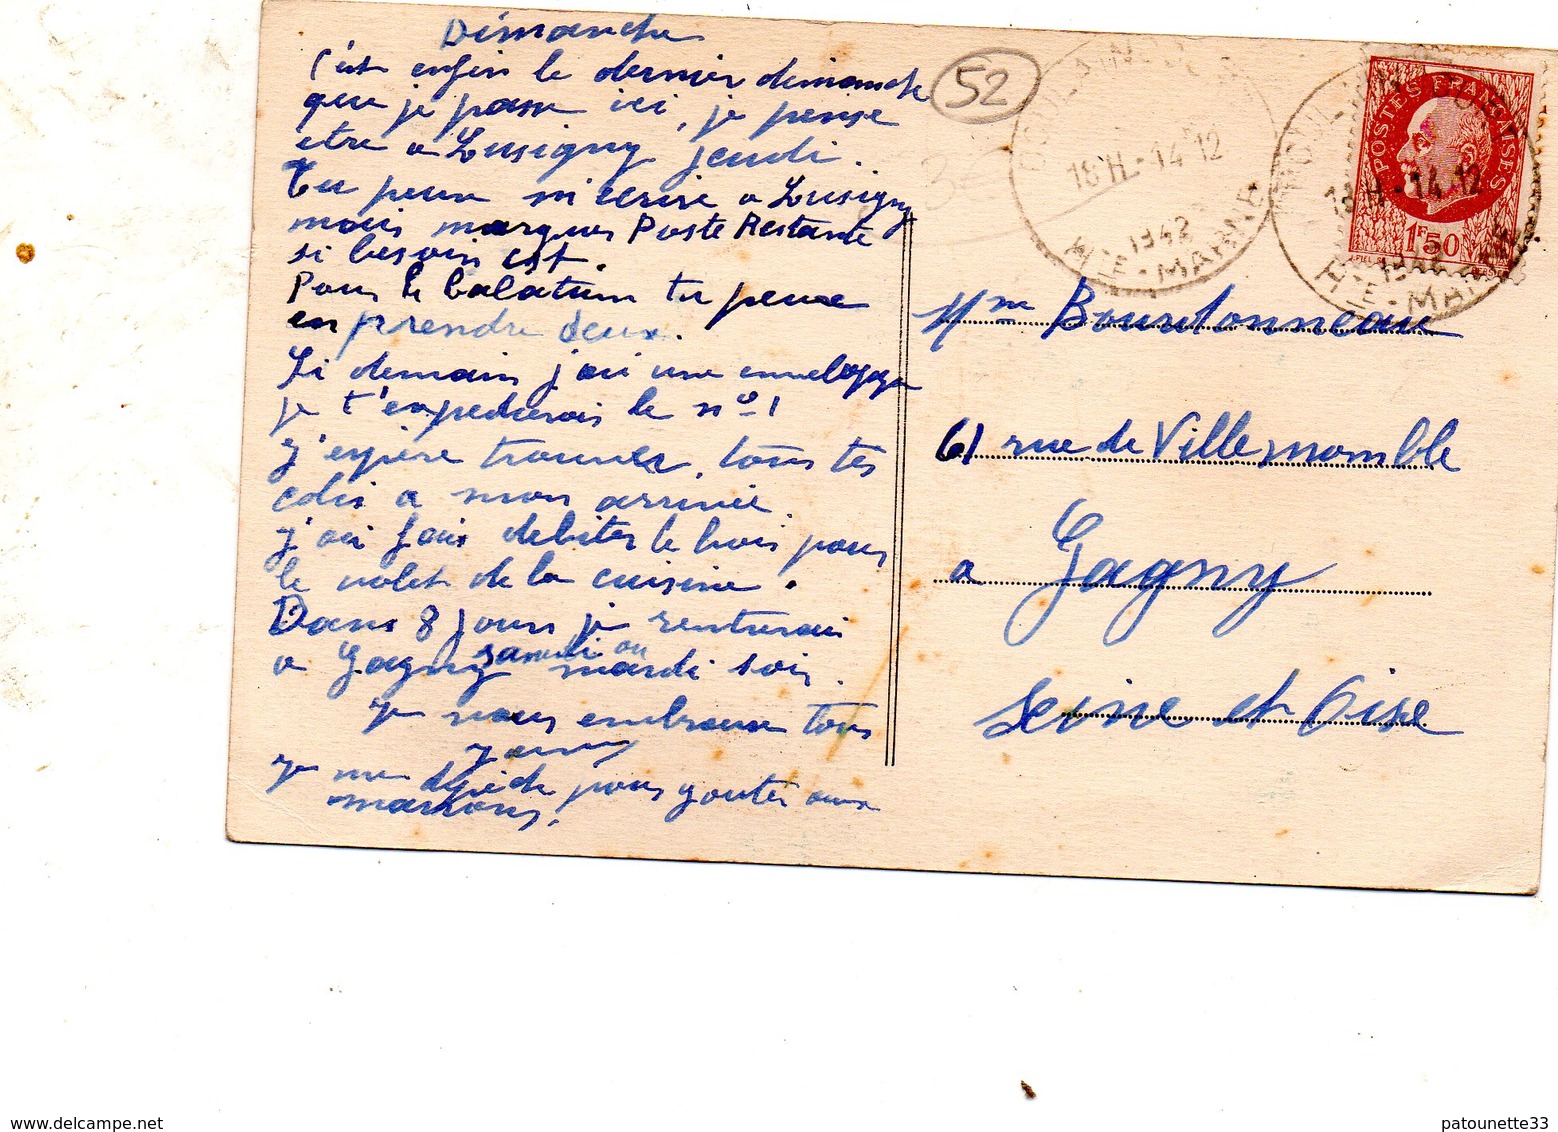 Dimanche
c'est enfin le dernier dimanche
que je passe ici, je pense
etre a Lusigny jeudi.
Tu peux m'ecrire a Lusigny
mais marques Poste Restante
si besoin est.
Pour le balatum tu peux
en prendre deux.
Si demain j'ai une enveloppe
je t'expedierais le nº 1
J'espère trouver tous tes
colis a mon arrivée.
J'ai fais debiter le bois pour
le volet de la cuisine.
Dans 8 jours je rentrerai
a Gagny samedi ou mardi soir.
Je vous embrasse tous
Je me depeche pour gouter aux
marrons.
52
18 H - 14 12
1942
HTE - MARNE
POSTES FRANÇAISES
1F50
18 H - 14 12
1942
HTE - MARNE
Mme Bourdonneau
61 rue de Villemomble
a Gagny
Seine et Oise
patounette33